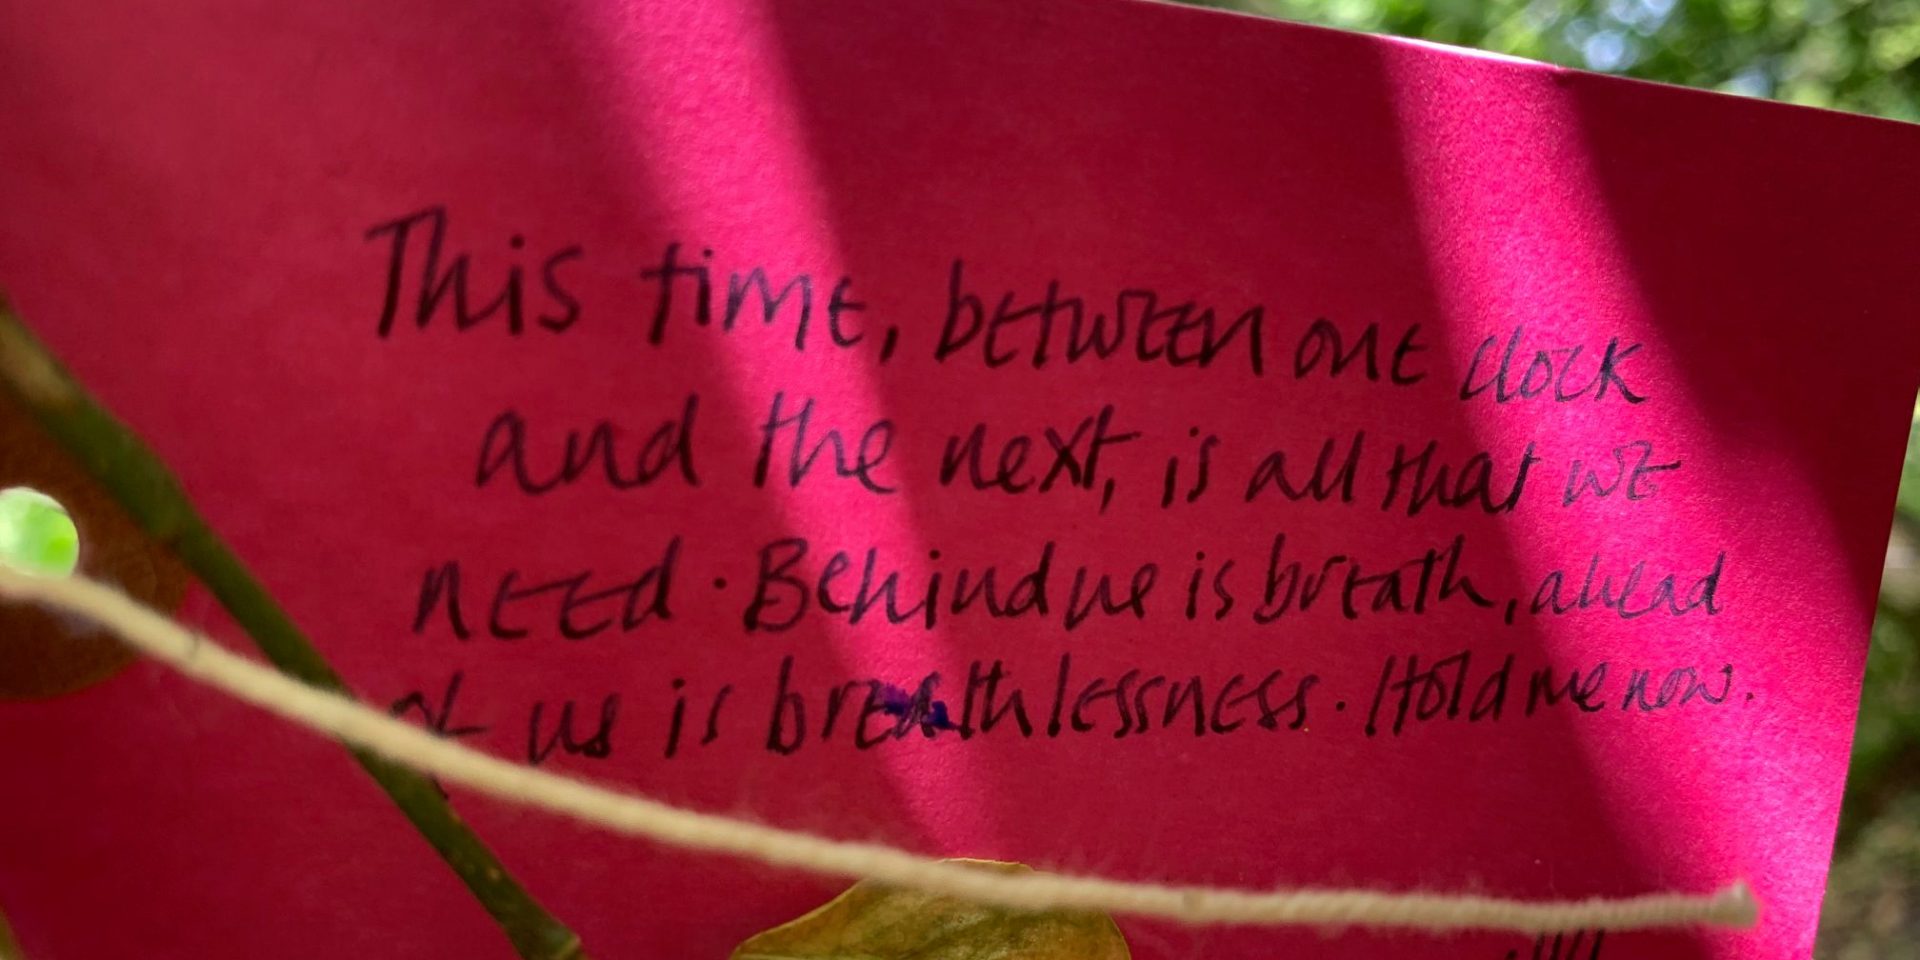 This time, between one clock
and the next, is all that we
need. Behind me is breath, ahead
of us is breathlessness. Hold me now.